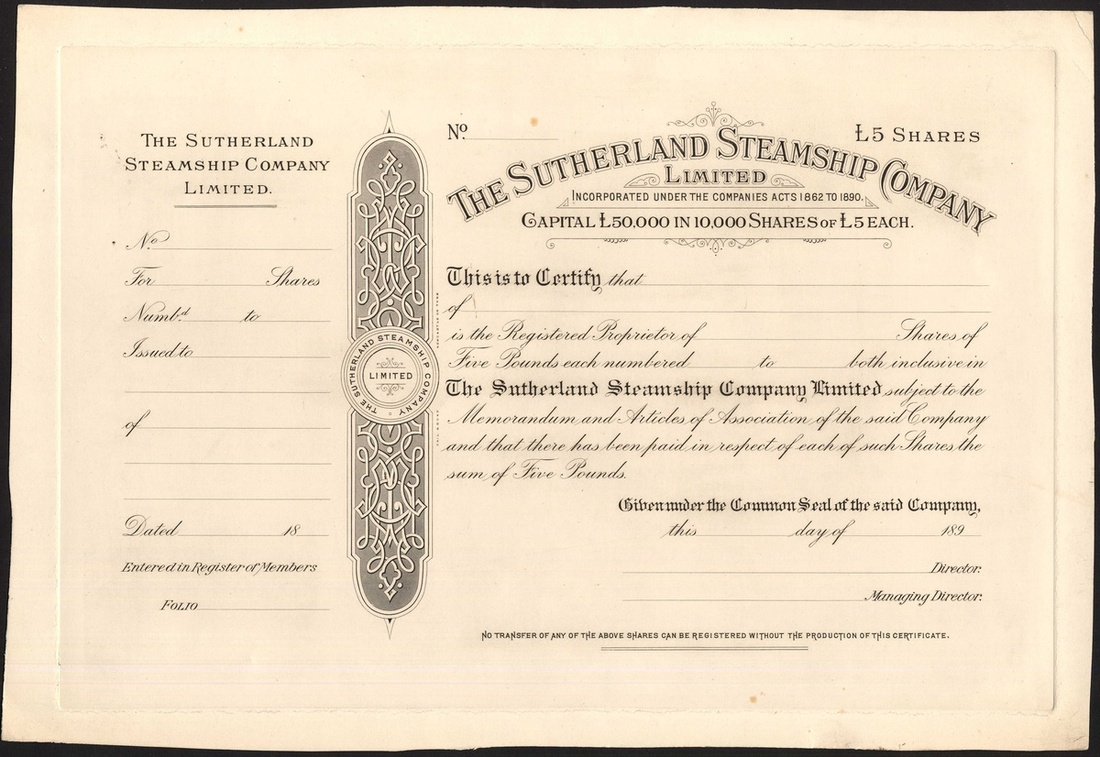 THE SUTHERLAND
STEAMSHIP COMPANY
LIMITED.
No.
For Shares
Numb.d to
Issued to
of
Dated 18
Entered in Register of Members
FOLIO
THE SUTHERLAND STEAMSHIP COMPANY
LIMITED
No.
£5 SHARES
THE SUTHERLAND STEAMSHIP COMPANY
LIMITED
INCORPORATED UNDER THE COMPANIES ACTS 1862 TO 1890.
CAPITAL £50,000 IN 10,000 SHARES OF £5 EACH.
This is to Certify that
of
is the Registered Proprietor of Shares of
Five Pounds each numbered to both inclusive in
The Sutherland Steamship Company Limited subject to the
Memorandum and Articles of Association of the said Company
and that there has been paid in respect of each of such Shares the
sum of Five Pounds.
Given under the Common Seal of the said Company,
this day of 189
Director.
Managing Director.
NO TRANSFER OF ANY OF THE ABOVE SHARES CAN BE REGISTERED WITHOUT THE PRODUCTION OF THIS CERTIFICATE.